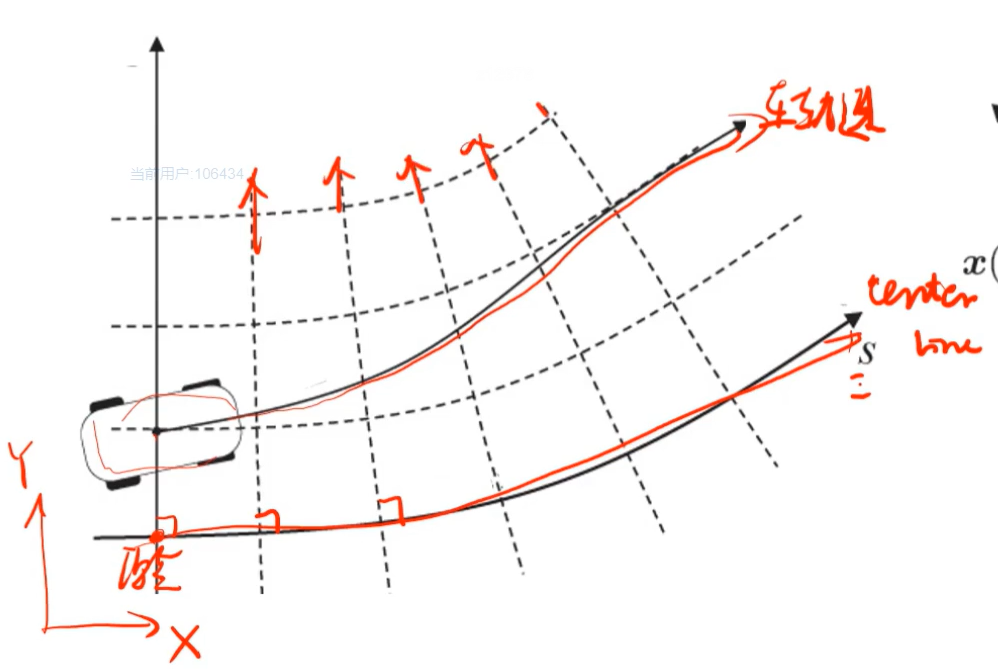 当前用户:106434
车轨迹
x(
center
line
s
Y
X